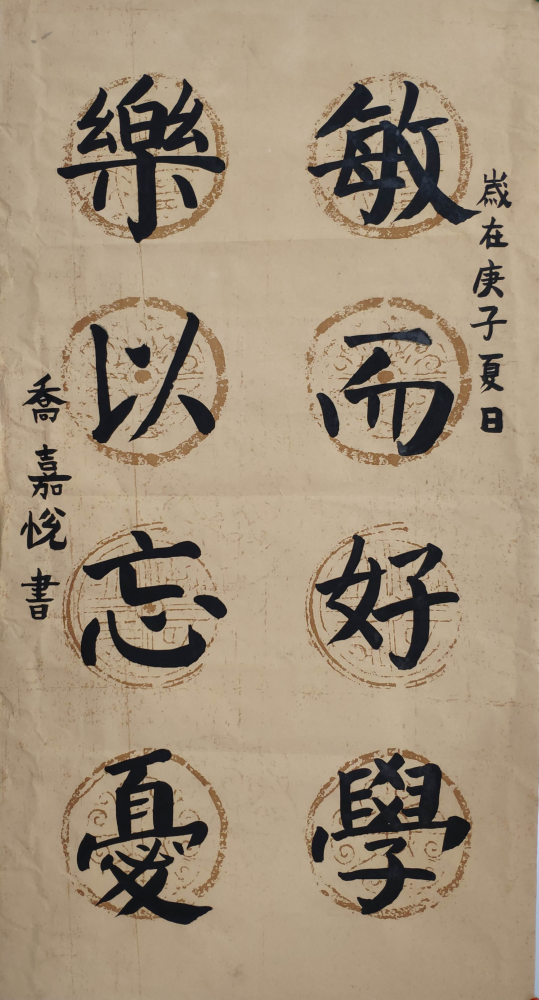 歲在庚子夏日
敏而好學
樂以忘憂
喬嘉悅書